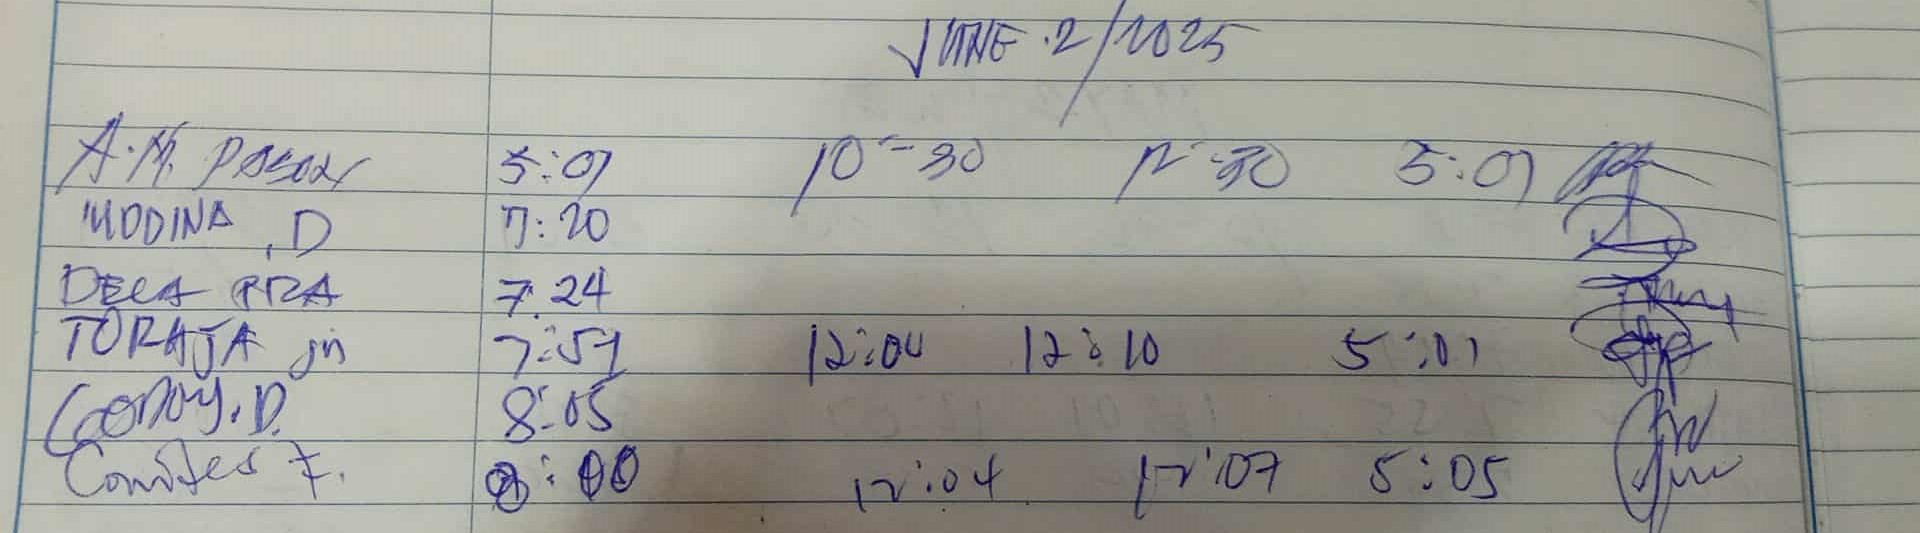 JUNE.2/2025
A.M. 5:07 10-30 12:30 5:07
MODINA, D 7:20
DELA 7.24
TORAJA jn 7:57 12:04 12:10 5:01
GODOY.D. 8:05
F. 8:00 12:04 12:07 5:05